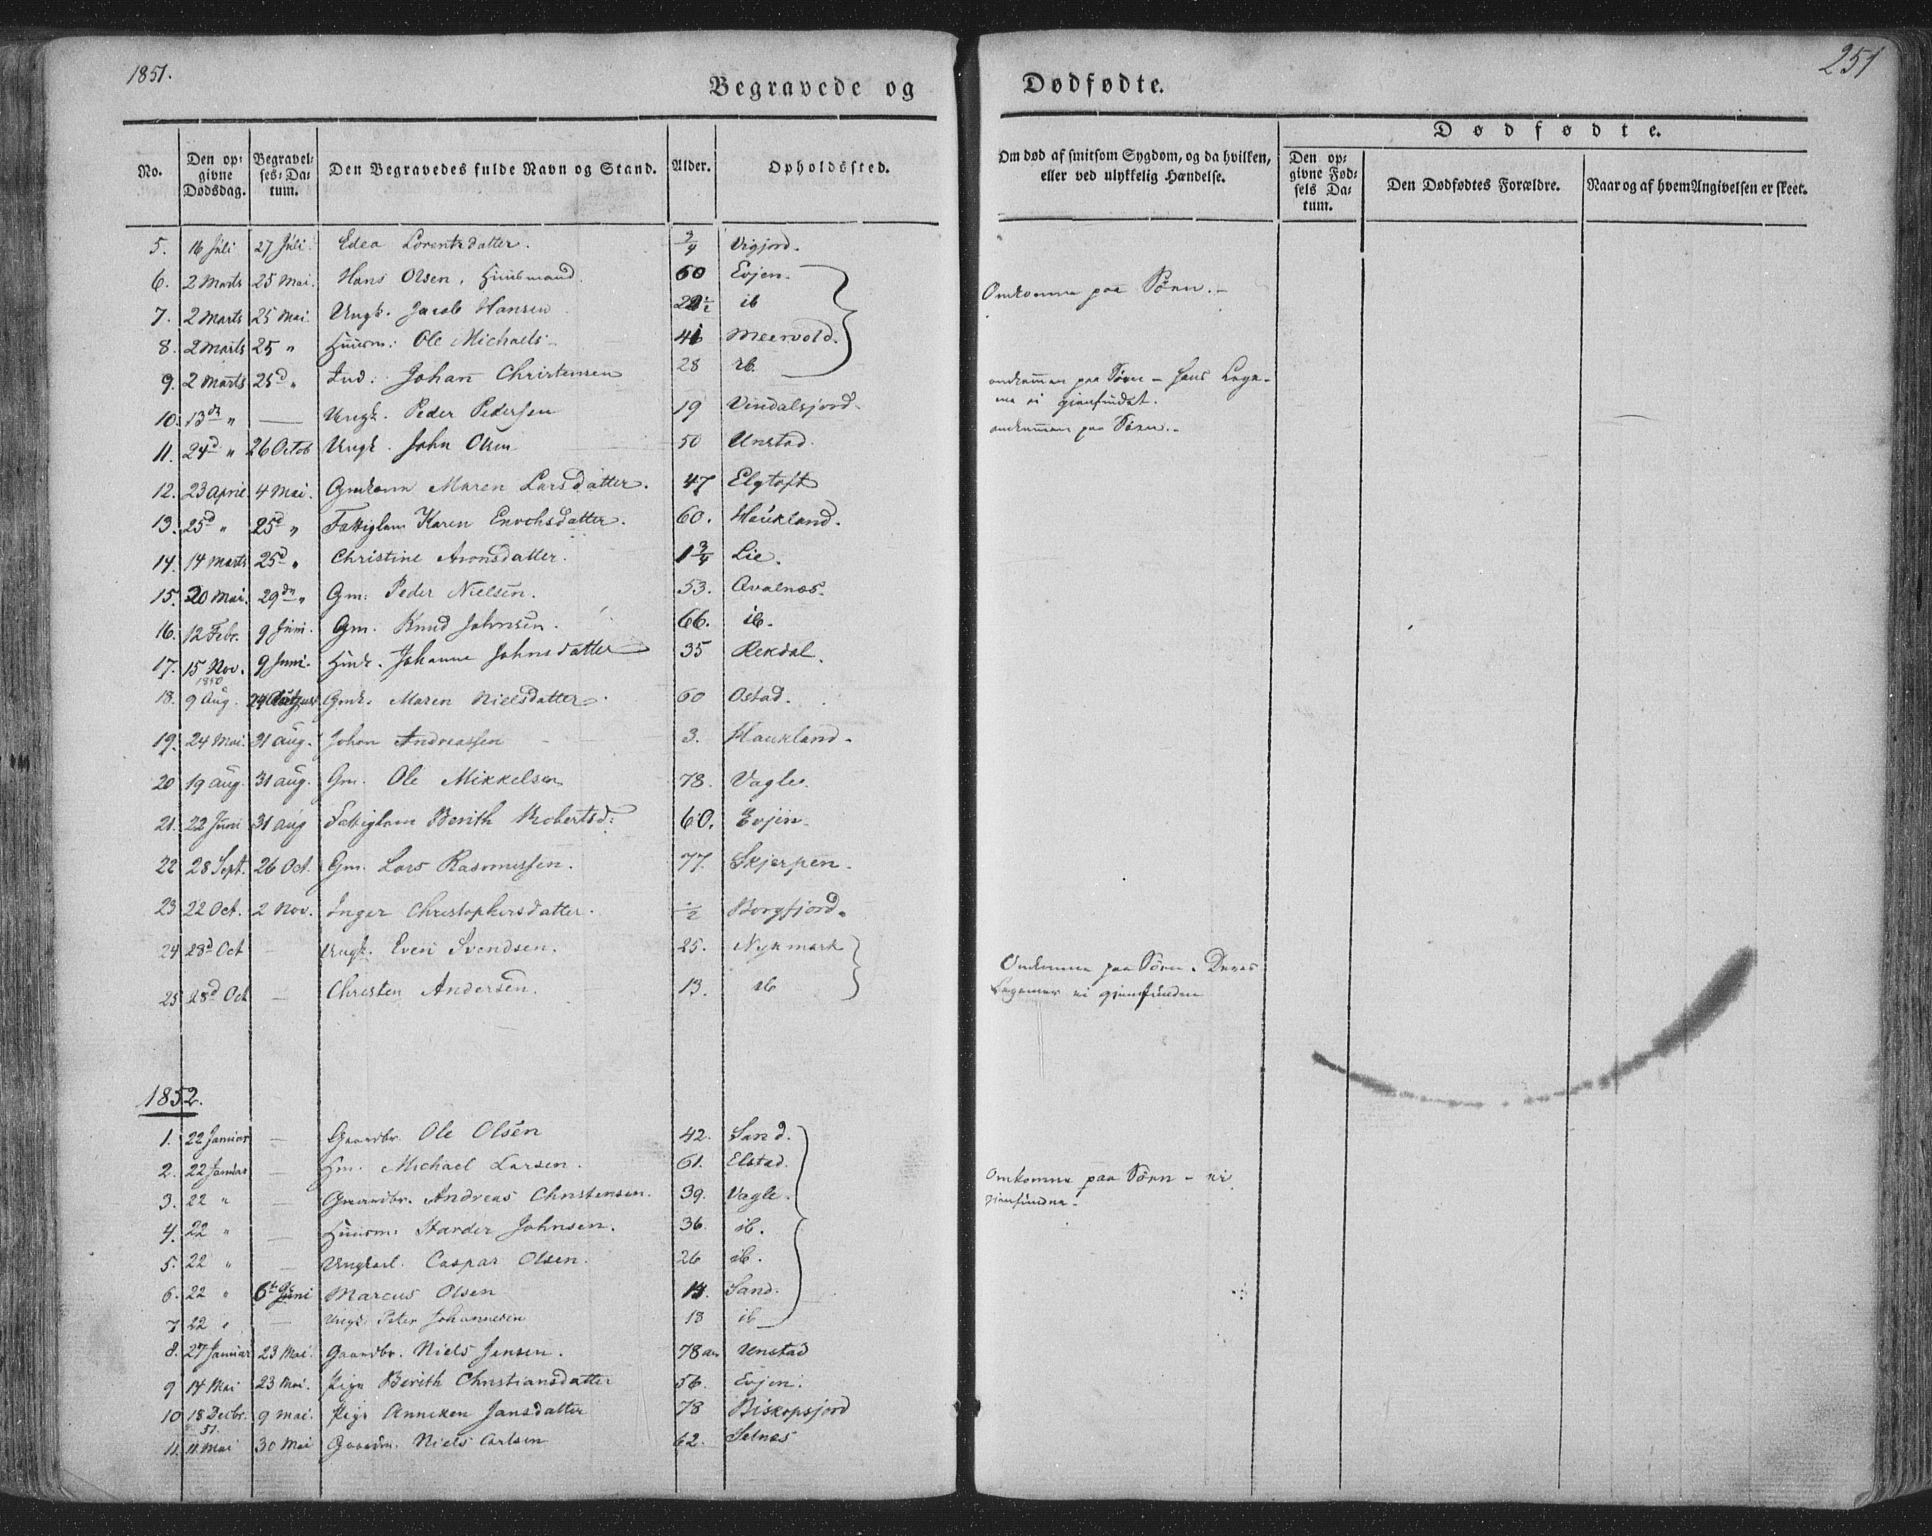 1851.
251
Begravede og Dødfødte.
No. Den opgivne Dødsdag. Begravelses-Datum. Den Begravedes fulde Navn og Stand. Alder. Opholdssted. Om død af smitsom Sygdom, og da hvilken, eller ved ulykkelig Hændelse. Dødfødte. Den opgivne Fødsels Datum. Den Dødfødtes Forældre. Naar og af hvem Angivelsen er skeet.
5. 16 Juli 27 Juli. Edea Lorentsdatter. 3/4 Vigjord.
6. 2 Marts 25 Mai. Hans Olsen, Huusmand 60 Evjen. Omkomne paa Søen.
7. 2 Marts 25 Mai. Ungk. Jacob Hansen ib
8. 2 Marts 25 " Huusm: Ole Michaels: Meervold.
9. 2 Marts 25d " Ind: Johan Christensen 28 ib. omkommen paa Søen - hans Lege-
me ei gjenfundet.
10. 13de " — Ungk. Peder Pedersen 19 Vindalsjord.
11. 24d " 26 Octob Ungk. John Olsen 50 Unstad. omkommen paa Søen.
12. 23 April 4 Mai. Gmkone Maren Larsdatter. 47 Elgtoft
13. 25d " 25d " Fattiglem Karen Enochsdatter. 60. Haukland.
14. 14 Marts 25d " Christine Aronsdatter. 1 3/4 Lie.
15. 20 Mai. 29de " Gm: Peder Nielsen. 53. Qvalnæs.
16. 12 Febr. 9 Juni. Gm. Knud Johnsen. 66. ib.
17. 15 Nov. 1850 9 Juni. Huusk. Johanna Johnsdatter 35 Rekdal.
18. 9 Aug. 24 August Gmk. Maren Nielsdatter. 60 Ostad.
19. 24 Mai. 31 Aug. Johan Andreassen 3. Haukland.
20 19 Aug. 31 Aug. Gm. Ole Mikkelsen 78. Vagle.
21. 22 Juni 31 Aug Fattiglem Berith Robertsd: 60. Evjen.
22 28 Sept. 26 Oct. Gm. Lars Rasmussen. 77. Skjerpen.
23 22 Oct. 2 Nov. Inger Christophersdatter. 1/2 Borgfjord.
24 28d Oct — Ungk. Even Svendsen. 25. Nykmark Omkomne paa Søen. Deres
25 28d Oct — Christen Andersen. 13. ib Legemer ei gjenfundne
1852.
1. 22 Januar — Gaardbr. Ole Olsen 42. Sand.
2. 22 Januar — Hm. Michael Larsen. 61. Elstad. Omkomne paa Søen - ei
3. 22 " — Gaardbr. Andreas Christensen. 39. Vagle. gjenfundne.
4. 22 " — Huusm: Harder Johnsen. 36. ib.
5. 22 " — Ungkarl. Caspar Olsen. 26 ib.
6. 22 " 6te Juni Marcus Olsen Sand.
7 22 " — Ungk. Peter Johannesen 18 ib
8. 27 Januar 23 Mai. Gaardbr. Niels Jensen. 78 Unstad
9 14 Mai 23 Mai. Pige Berith Christiansdatter 56. Evjen.
10 18 Decbr. 51. 9 Mai. Pige Anneken Jansdatter 78 Biskopsjord
11. 11. Mai 30 Mai Gaardm. Niels Carlsen 62. Selnæs